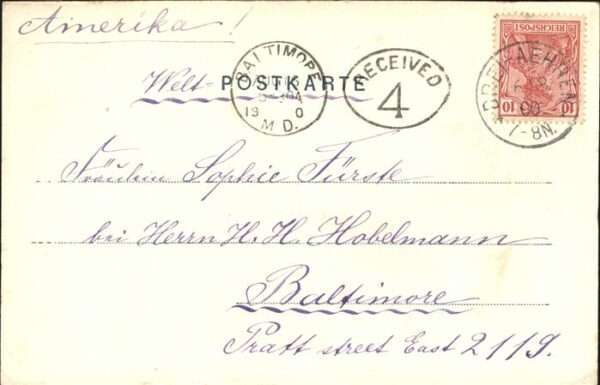 Amerika!
Welt-POSTKARTE
BALTIMORE
19 0
M D.
RECEIVED
4
REICHSPOST
10 10
DREI-AEHREN
00
7-8N.
Fräulein Sophie Fürste
bei Herrn H. H. Hobelmann
Baltimore
Pratt street East 2119.